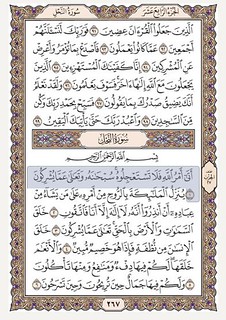 سُورَةُ النَّحْلِ
الجُزْءُ الرَّابِعَ عَشَرَ
الَّذِينَ جَعَلُوا الْقُرْءَانَ عِضِينَ ٩١ فَوَرَبِّكَ لَنَسْـَٔلَنَّهُمْ
أَجْمَعِينَ ٩٢ عَمَّا كَانُوا يَعْمَلُونَ ٩٣ فَاصْدَعْ بِمَا تُؤْمَرُ وَأَعْرِضْ
عَنِ الْمُشْرِكِينَ ٩٤ إِنَّا كَفَيْنَاكَ الْمُسْتَهْزِءِينَ ٩٥ الَّذِينَ
يَجْعَلُونَ مَعَ اللَّهِ إِلَٰهًا ءَاخَرَ فَسَوْفَ يَعْلَمُونَ ٩٦ وَلَقَدْ نَعْلَمُ
أَنَّكَ يَضِيقُ صَدْرُكَ بِمَا يَقُولُونَ ٩٧ فَسَبِّحْ بِحَمْدِ رَبِّكَ وَكُن
مِّنَ السَّاجِدِينَ ٩٨ وَاعْبُدْ رَبَّكَ حَتَّىٰ يَأْتِيَكَ الْيَقِينُ ٩٩
سُورَةُ النَّحْلِ
بِسْمِ اللَّهِ الرَّحْمَٰنِ الرَّحِيمِ
أَتَىٰ أَمْرُ اللَّهِ فَلَا تَسْتَعْجِلُوهُ سُبْحَانَهُ وَتَعَالَىٰ عَمَّا يُشْرِكُونَ
١ يُنَزِّلُ الْمَلَائِكَةَ بِالرُّوحِ مِنْ أَمْرِهِ عَلَىٰ مَن يَشَاءُ مِنْ
عِبَادِهِ أَنْ أَنذِرُوا أَنَّهُ لَا إِلَٰهَ إِلَّا أَنَا فَاتَّقُونِ ٢ خَلَقَ
السَّمَاوَاتِ وَالْأَرْضَ بِالْحَقِّ تَعَالَىٰ عَمَّا يُشْرِكُونَ ٣ خَلَقَ
الْإِنسَانَ مِن نُّطْفَةٍ فَإِذَا هُوَ خَصِيمٌ مُّبِينٌ ٤ وَالْأَنْعَامَ
خَلَقَهَا لَكُمْ فِيهَا دِفْءٌ وَمَنَافِعُ وَمِنْهَا تَأْكُلُونَ
٥ وَلَكُمْ فِيهَا جَمَالٌ حِينَ تُرِيحُونَ وَحِينَ تَسْرَحُونَ ٦
٢٦٧